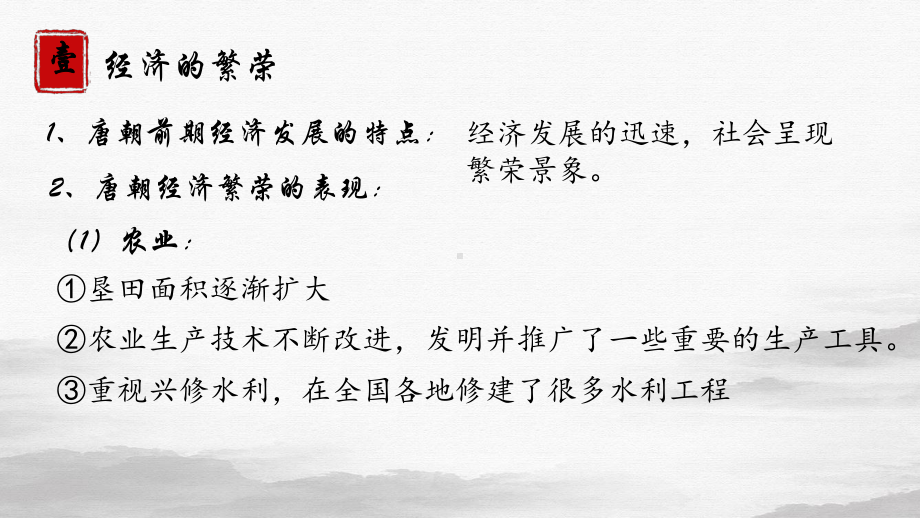 壹
经济的繁荣
1、唐朝前期经济发展的特点：
经济发展的迅速，社会呈现
繁荣景象。
2、唐朝经济繁荣的表现：
（1）农业：
①垦田面积逐渐扩大
②农业生产技术不断改进，发明并推广了一些重要的生产工具。
③重视兴修水利，在全国各地修建了很多水利工程